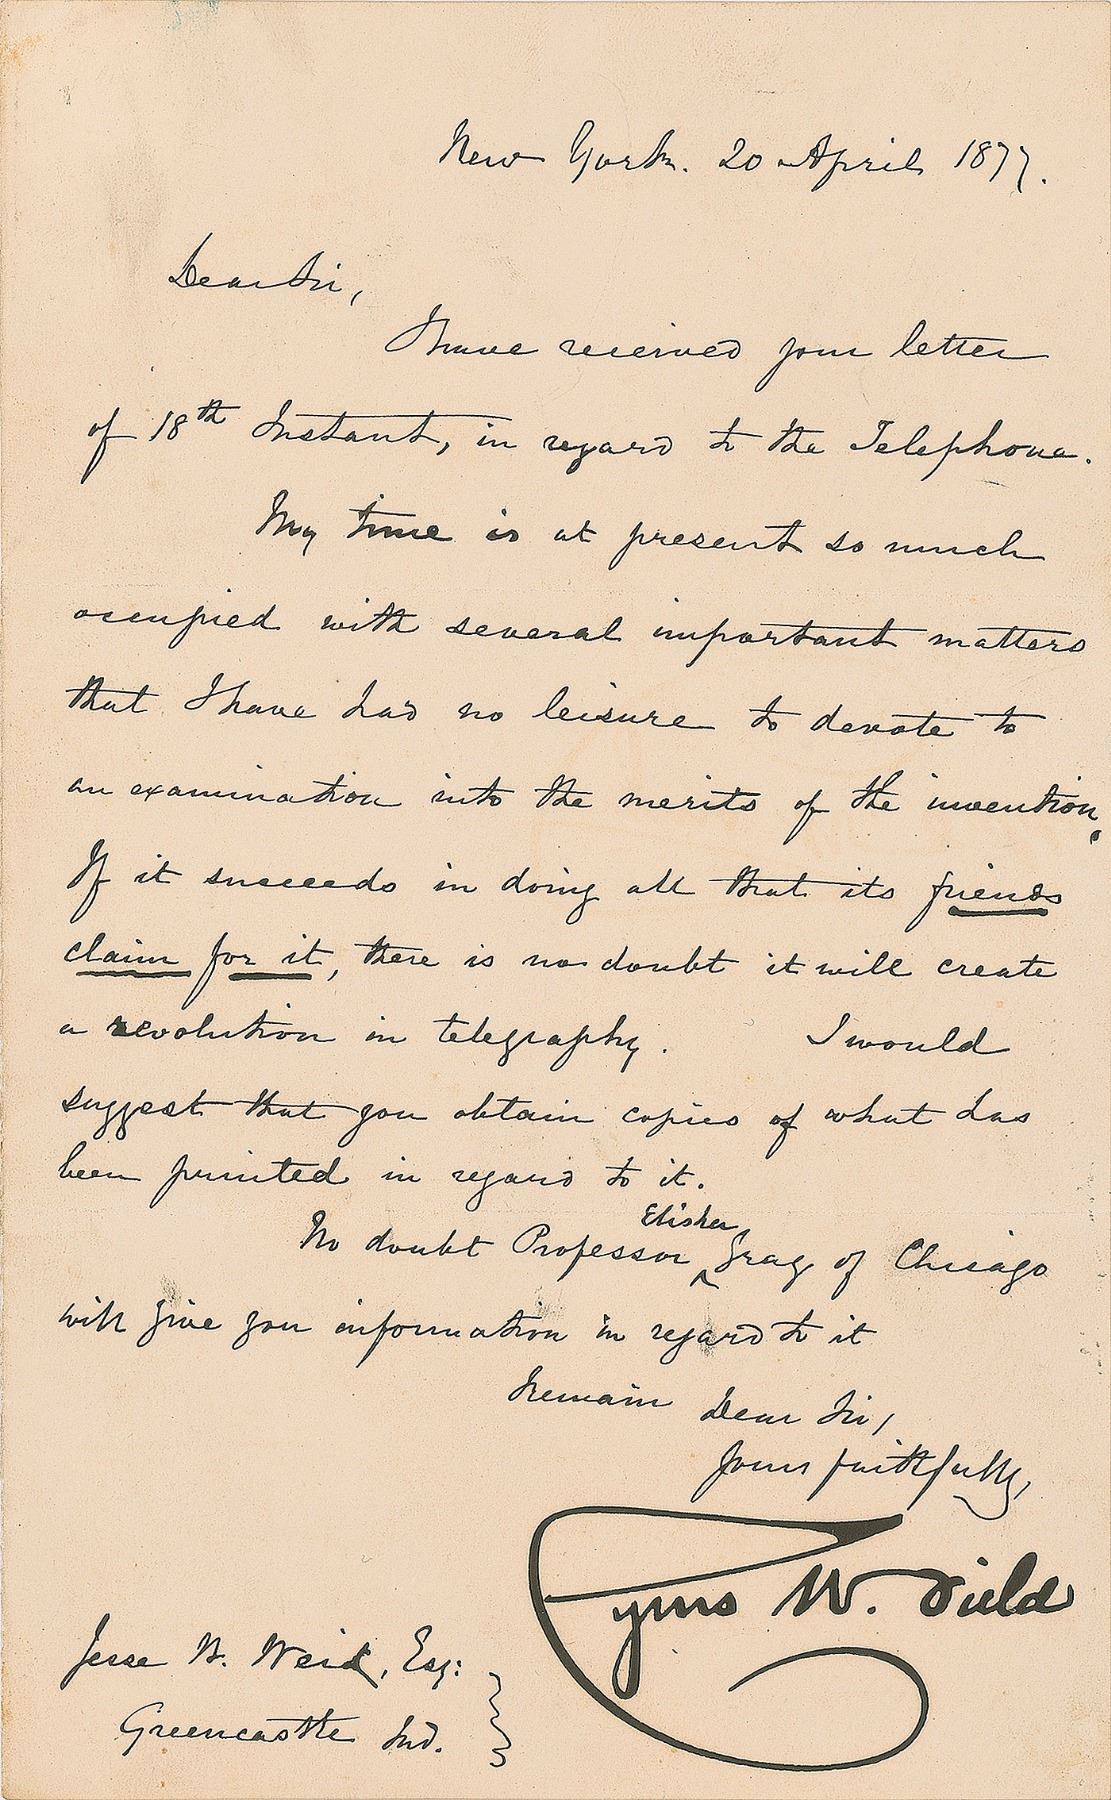 New York. 20 April 1877.
Dear Sir,
I have received your letter
of 18th Instant, in regard to the Telephone.
My time is at present so much
occupied with several important matters
that I have had no leisure to devote to
an examination into the merits of the invention.
If it succeeds in doing all that its friends
claim for it, there is no doubt it will create
a revolution in telegraphy. I would
suggest that you obtain copies of what has
been printed in regard to it.
No doubt Professor Elisha Gray of Chicago
will give you information in regard to it
I remain Dear Sir,
Yours faithfully,
Cyrus W. Field
Jesse W. Weik, Esq:
Greencastle Ind.